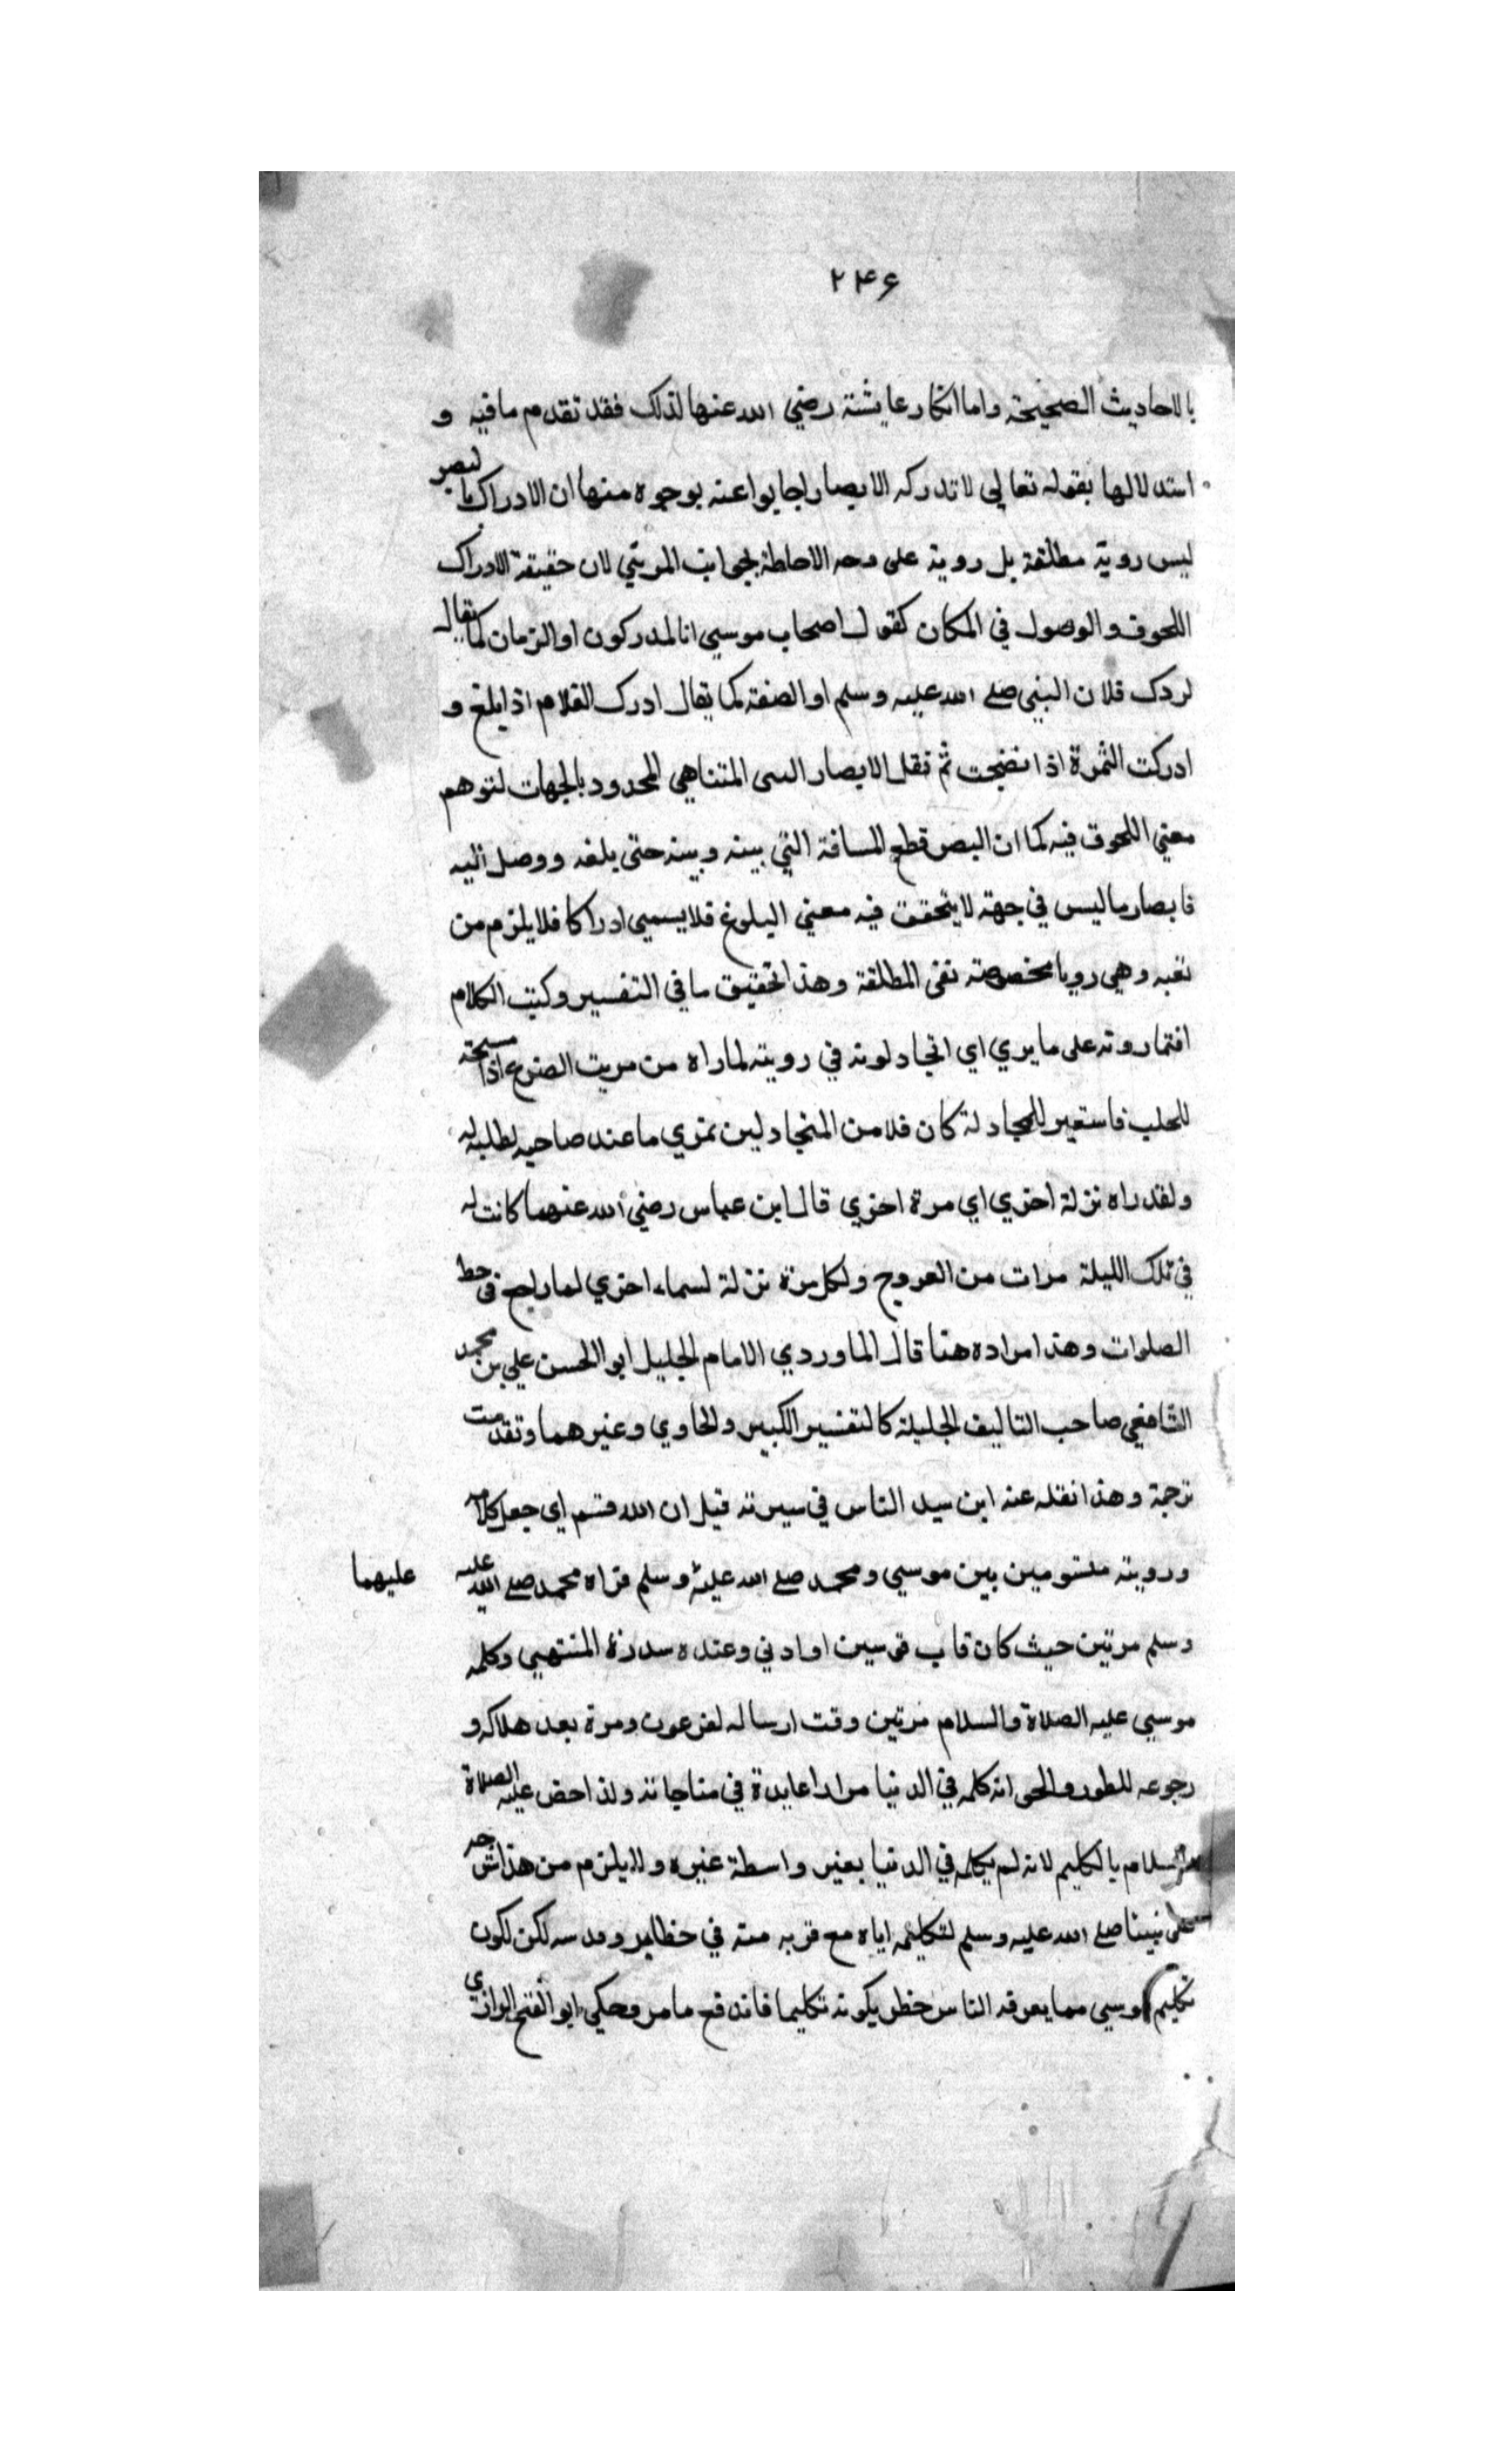 ٢٤۶
بالاحاديث الصحيحة واما انكار عايشة رضي الله عنها لذلك فقد تقدم مافيه و
استدلالها بقوله تعالى لا تدركه الابصار اجابوا عنه بوجوه منها ان الادراك بالبصر
ليس روية مطلقة بل روية على وجه الاحاطة بجوانب المرئي لان حقيقة الادراك
اللحوق والوصول في المكان كقول اصحاب موسى انا لمدركون او الزمان كما يقال
ادرك فلان النبي صلے الله عليه وسلم او الصفة كما يقال ادرك الغلام اذا بلغ و
ادركت الثمرة اذا نضجت ثم نقل الابصار الشي المتناهي المحدود بالجهات لتوهم
معني اللحوق فيه كما ان البصر قطع المسافة التي بينه وبينه حتى بلغه ووصل اليه
فابصار ماليس في جهة لا يتحقق فيه معني البلوغ فلا يسمي ادراكا فلا يلزم من
نفيه وهي رويا مخصوصة نفى المطلقة وهذا تحقيق ما في التفسير وكتب الكلام
افتمارونه على ما يري اي اتجادلونه في رويته لما راه من مريت الضرع اذا مسحته
للحلب فاستعير للمجادلة كان كلا من المتجادلين يمري ما عند صاحبه لطلبه له
ولقد راه نزلة اخري اي مرة اخري قال ابن عباس رضي الله عنهما كانت له
في تلك الليلة مرات من العروج ولكل مرة نزلة لسماء اخري لما راجع في حط
الصلوات وهذا مراده هنا قال الماوردي الامام الجليل ابو الحسن علي بن محمد
الشافعي صاحب التاليف الجليلة كالتفسير الكبير والحاوي وغيرهما وتقدمت
ترجمة وهذا نقله عنه ابن سيد الناس في سيرته قيل ان الله قسم اي جعل كلامه
ورويته مقسومين بين موسي ومحمد صلے الله عليه وسلم فراه محمد صلے الله عليه
عليهما
وسلم مرتين حيث كان قاب قوسين او ادني وعنده سدرة المنتهي وكلمه
موسي عليه الصلاة والسلام مرتين وقت ارساله لفرعون ومرة بعد هلاكه و
رجوعه للطور والحق انه كلمه في الدنيا مرارا عديدة في مناجاته ولذا خص عليه الصلاة
والسلام بالكليم لانه لم يكلمه في الدنيا بغير واسطة غيره ولا يلزم من هذا
على نبينا صلے الله عليه وسلم لتكليمه اياه مع قربه منه في قدسه لكن لكون
تكليم موسي مما يعرفه الناس بكونه تكليما فاندفع ما مر وحكي ابو الفتح الرازي